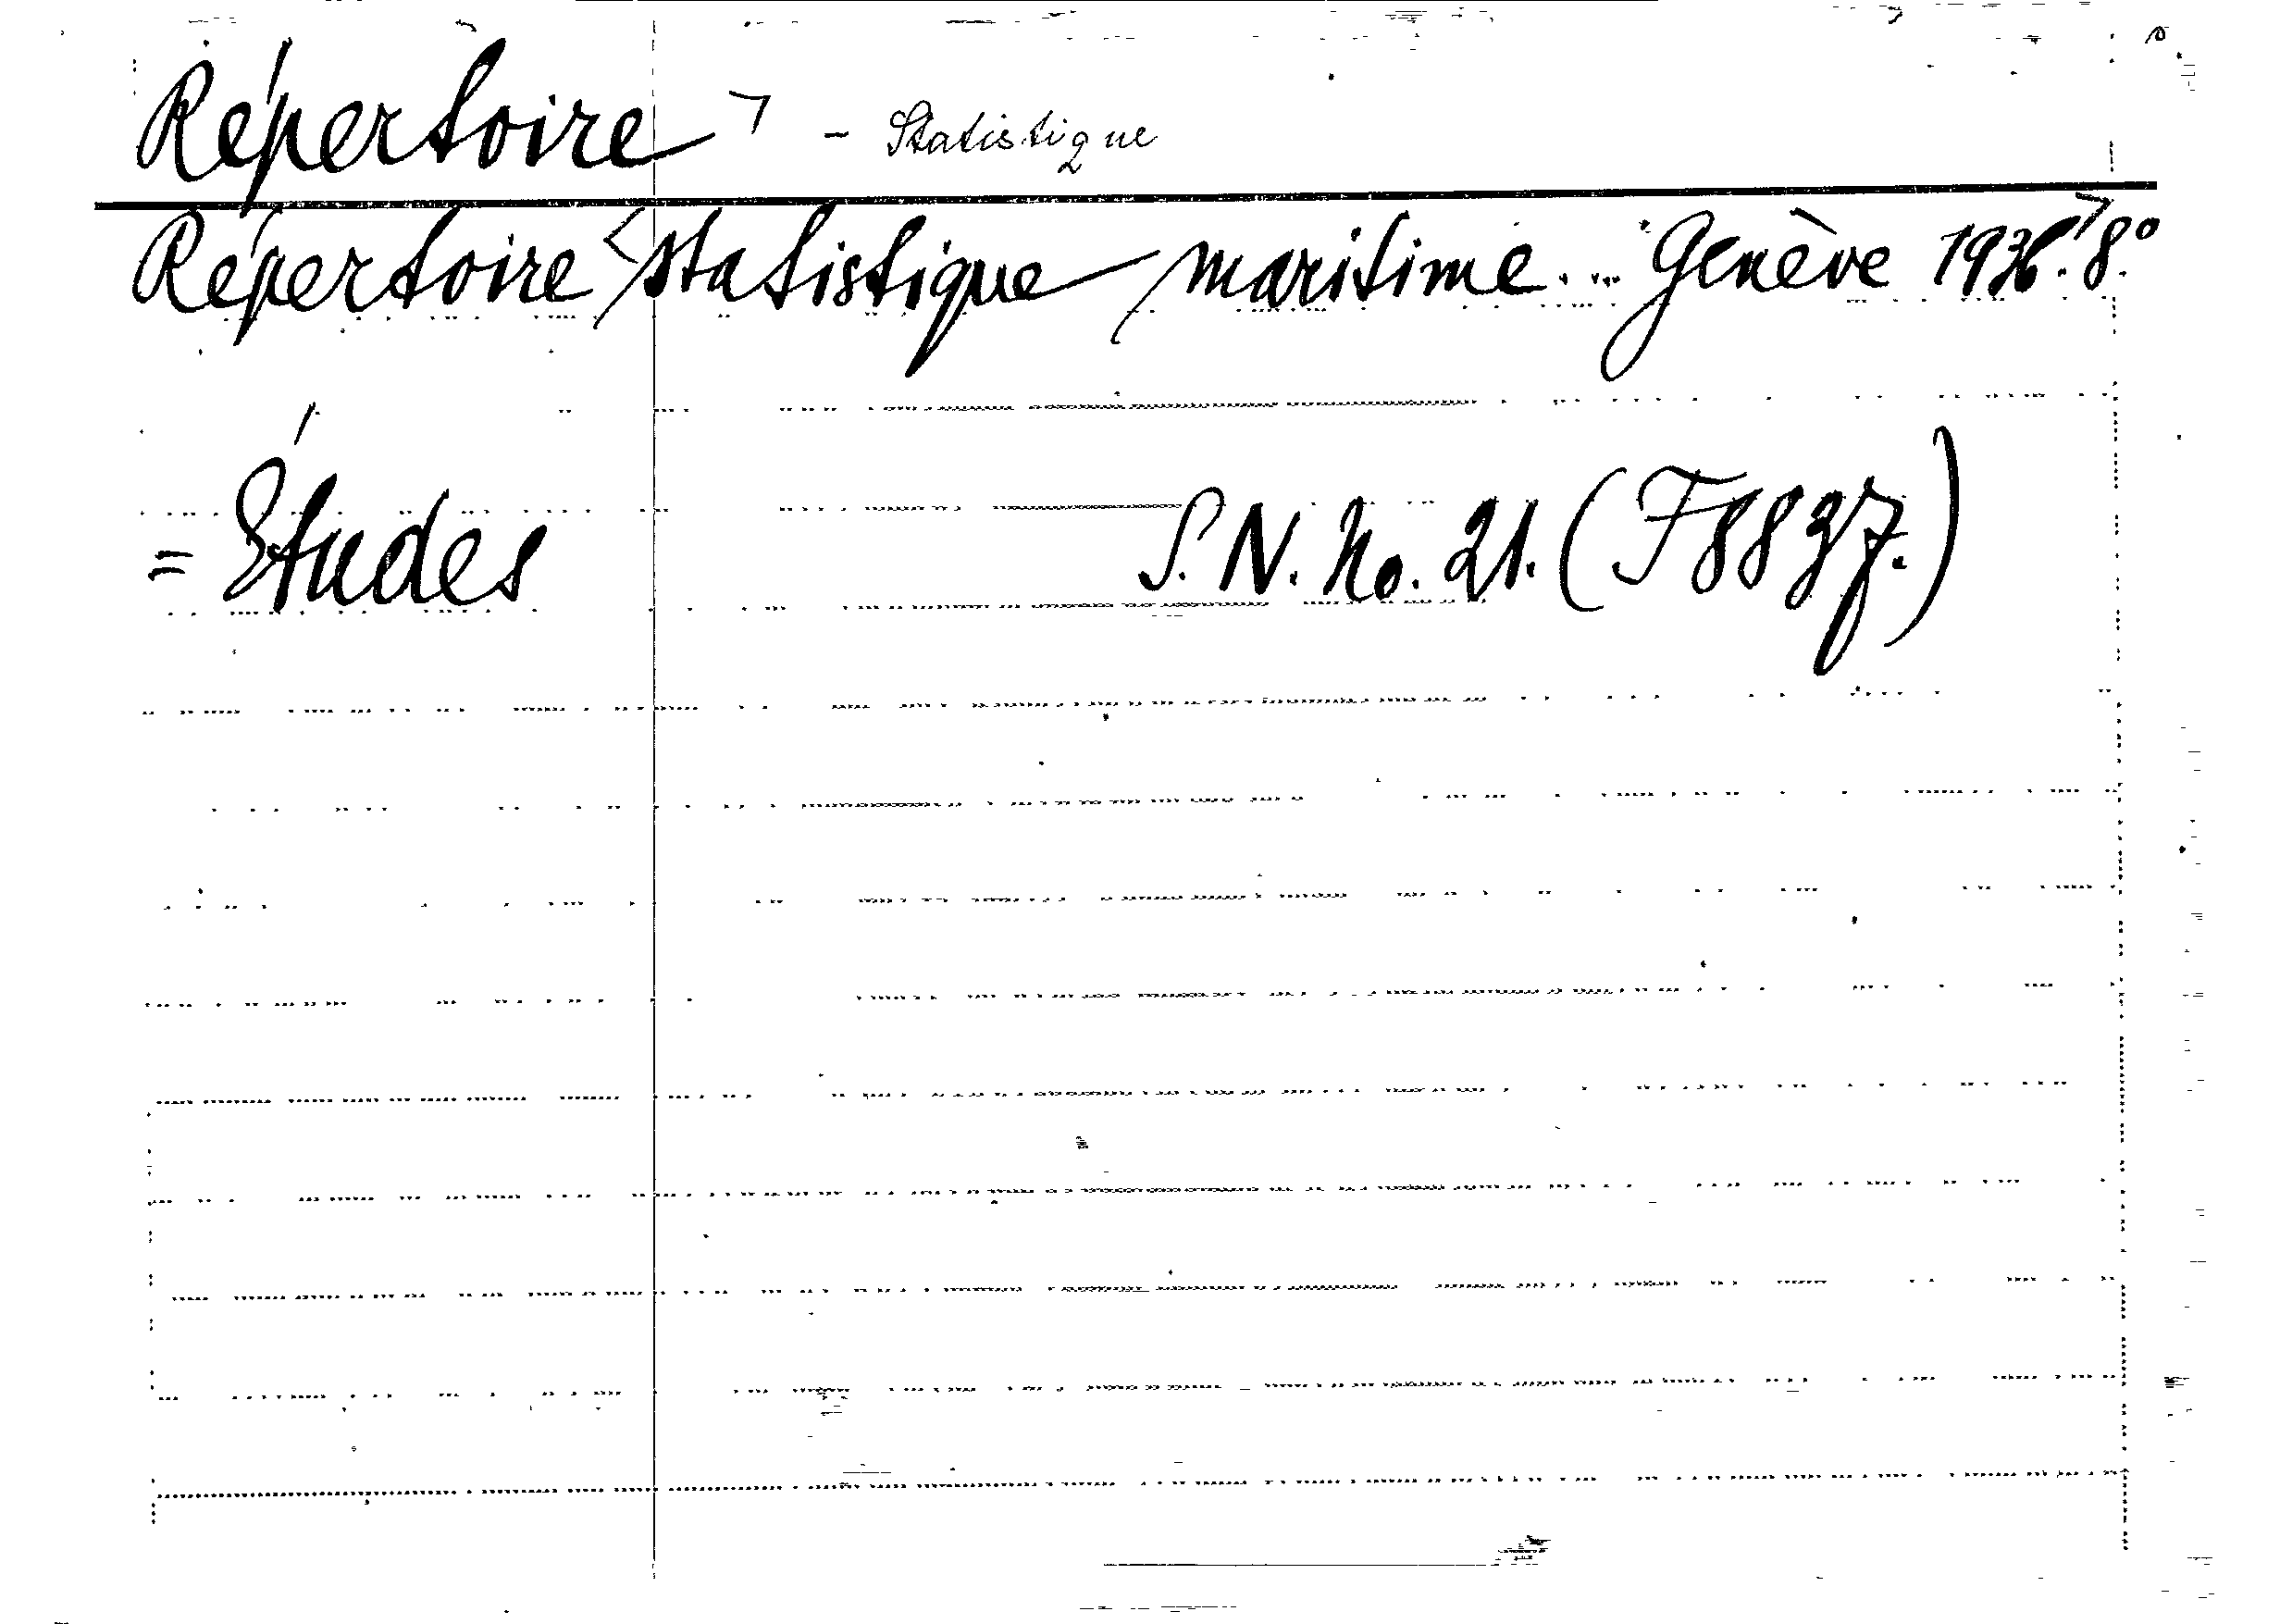 Répertoire ¬ - Statistique
Répertoire <statistique maritime... Genève 1936.¬8.°
= Études S. N. No. 21. (F8837.)